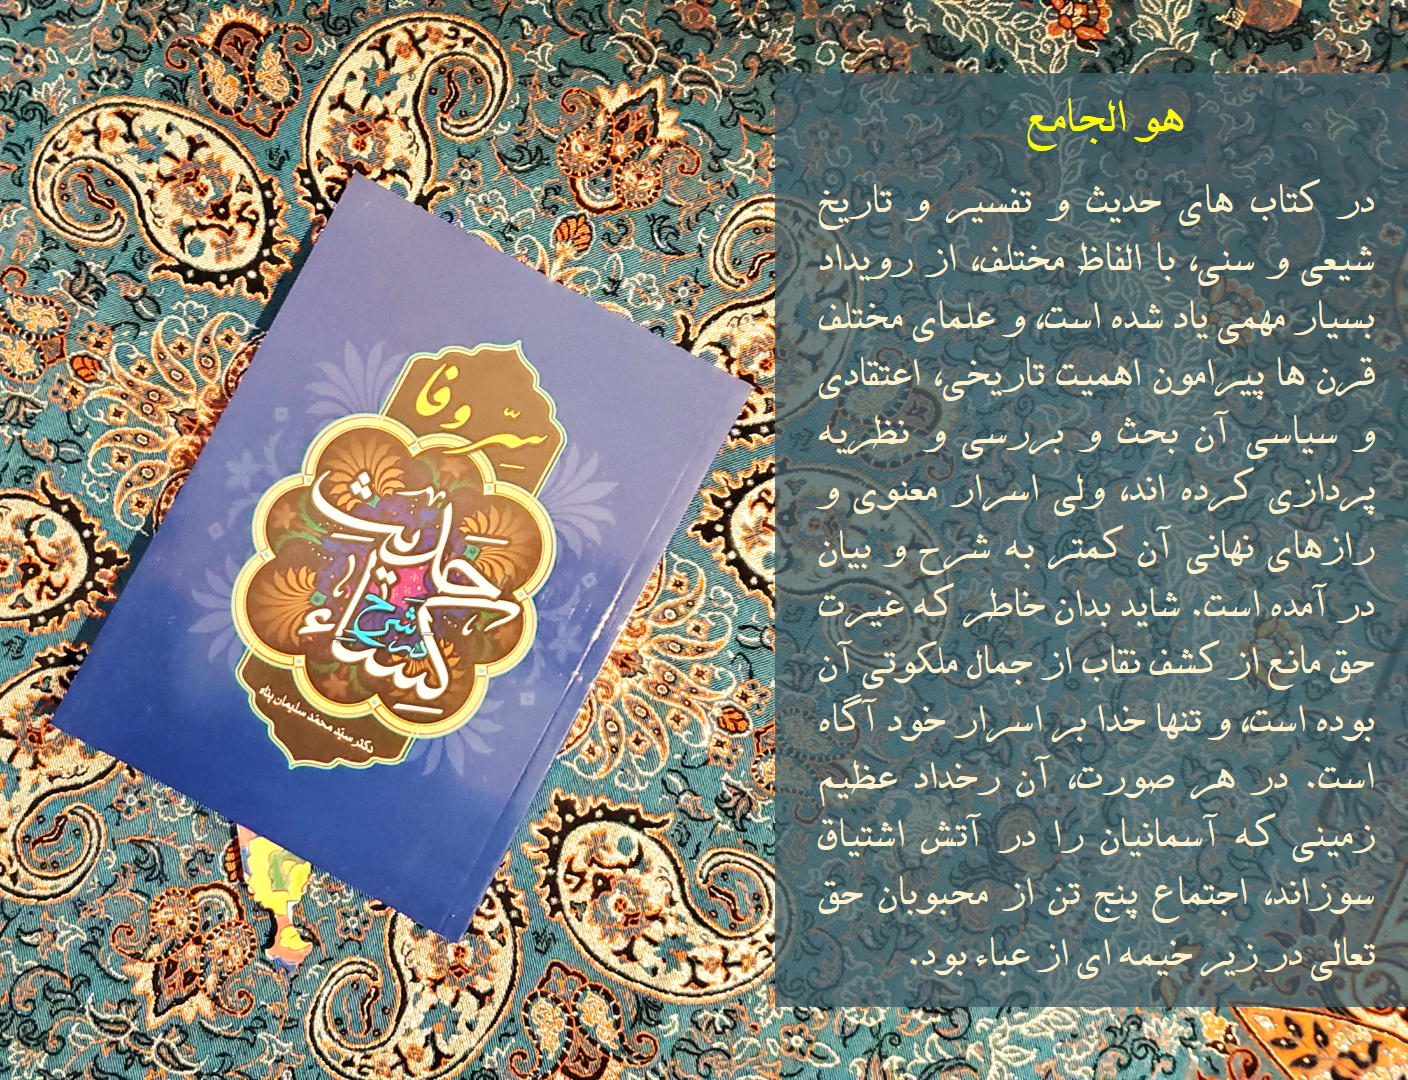 هو الجامع
در کتاب های حدیث و تفسیر و تاریخ
شیعی و سنی، با الفاظ مختلف، از رویداد
بسیار مهمی یاد شده است، و علمای مختلف
قرن ها پیرامون اهمیت تاریخی، اعتقادی
و سیاسی آن بحث و بررسی و نظریه
پردازی کرده اند، ولی اسرار معنوی و
رازهای نهانی آن کمتر به شرح و بیان
در آمده است. شاید بدان خاطر که غیرت
حق مانع از کشف نقاب از جمال ملکوتی آن
بوده است، و تنها خدا بر اسرار خود آگاه
است. در هر صورت، آن رخداد عظیم
زمینی که آسمانیان را در آتش اشتیاق
سوزاند، اجتماع پنج تن از محبوبان حق
تعالی در زیر خیمه ای از عباء بود.
سِرّ وفا
در شرح
حدیث
کساء
دکتر سیّد محمّد سلیمان پناه